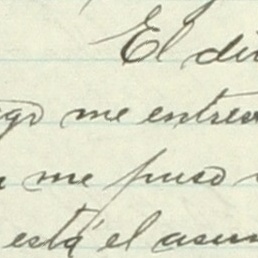 El di
me entre
me puso
está el asun